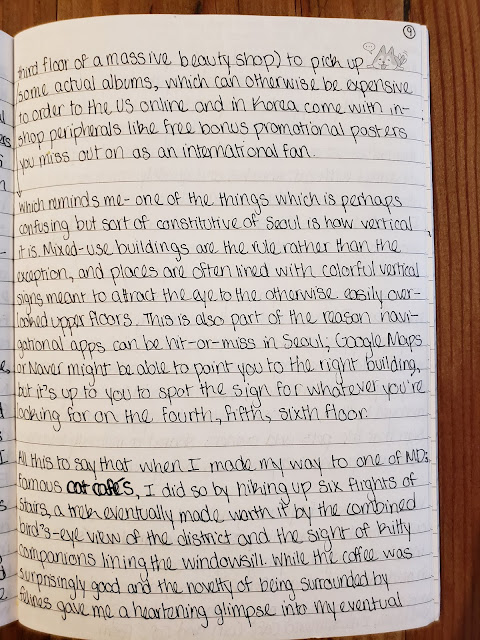 9
third floor of a massive beauty shop) to pick up
some actual albums, which can otherwise be expensive
to order to the US online and in Korea come with in-
shop peripherals like free bonus promotional posters
you miss out on as an international fan.
Which reminds me- one of the things which is perhaps
confusing but sort of constitutive of Seoul is how vertical
it is. Mixed-use buildings are the rule rather than the
exception, and places are often lined with colorful vertical
signs meant to attract the eye to the otherwise easily over-
looked upper floors. This is also part of the reason navi-
gational apps can be hit-or-miss in Seoul; Google Maps
or Naver might be able to point you to the right building,
but it's up to you to spot the sign for whatever you're
looking for on the fourth, fifth, sixth floor.
All this to say that when I made my way to one of MD's
famous cat cafés, I did so by hiking up six flights of
stairs, a trek eventually made worth it by the combined
bird's-eye view of the district and the sight of kitty
companions lining the windowsill. While the coffee was
surprisingly good and the novelty of being surrounded by
felines gave me a heartening glimpse into my eventual